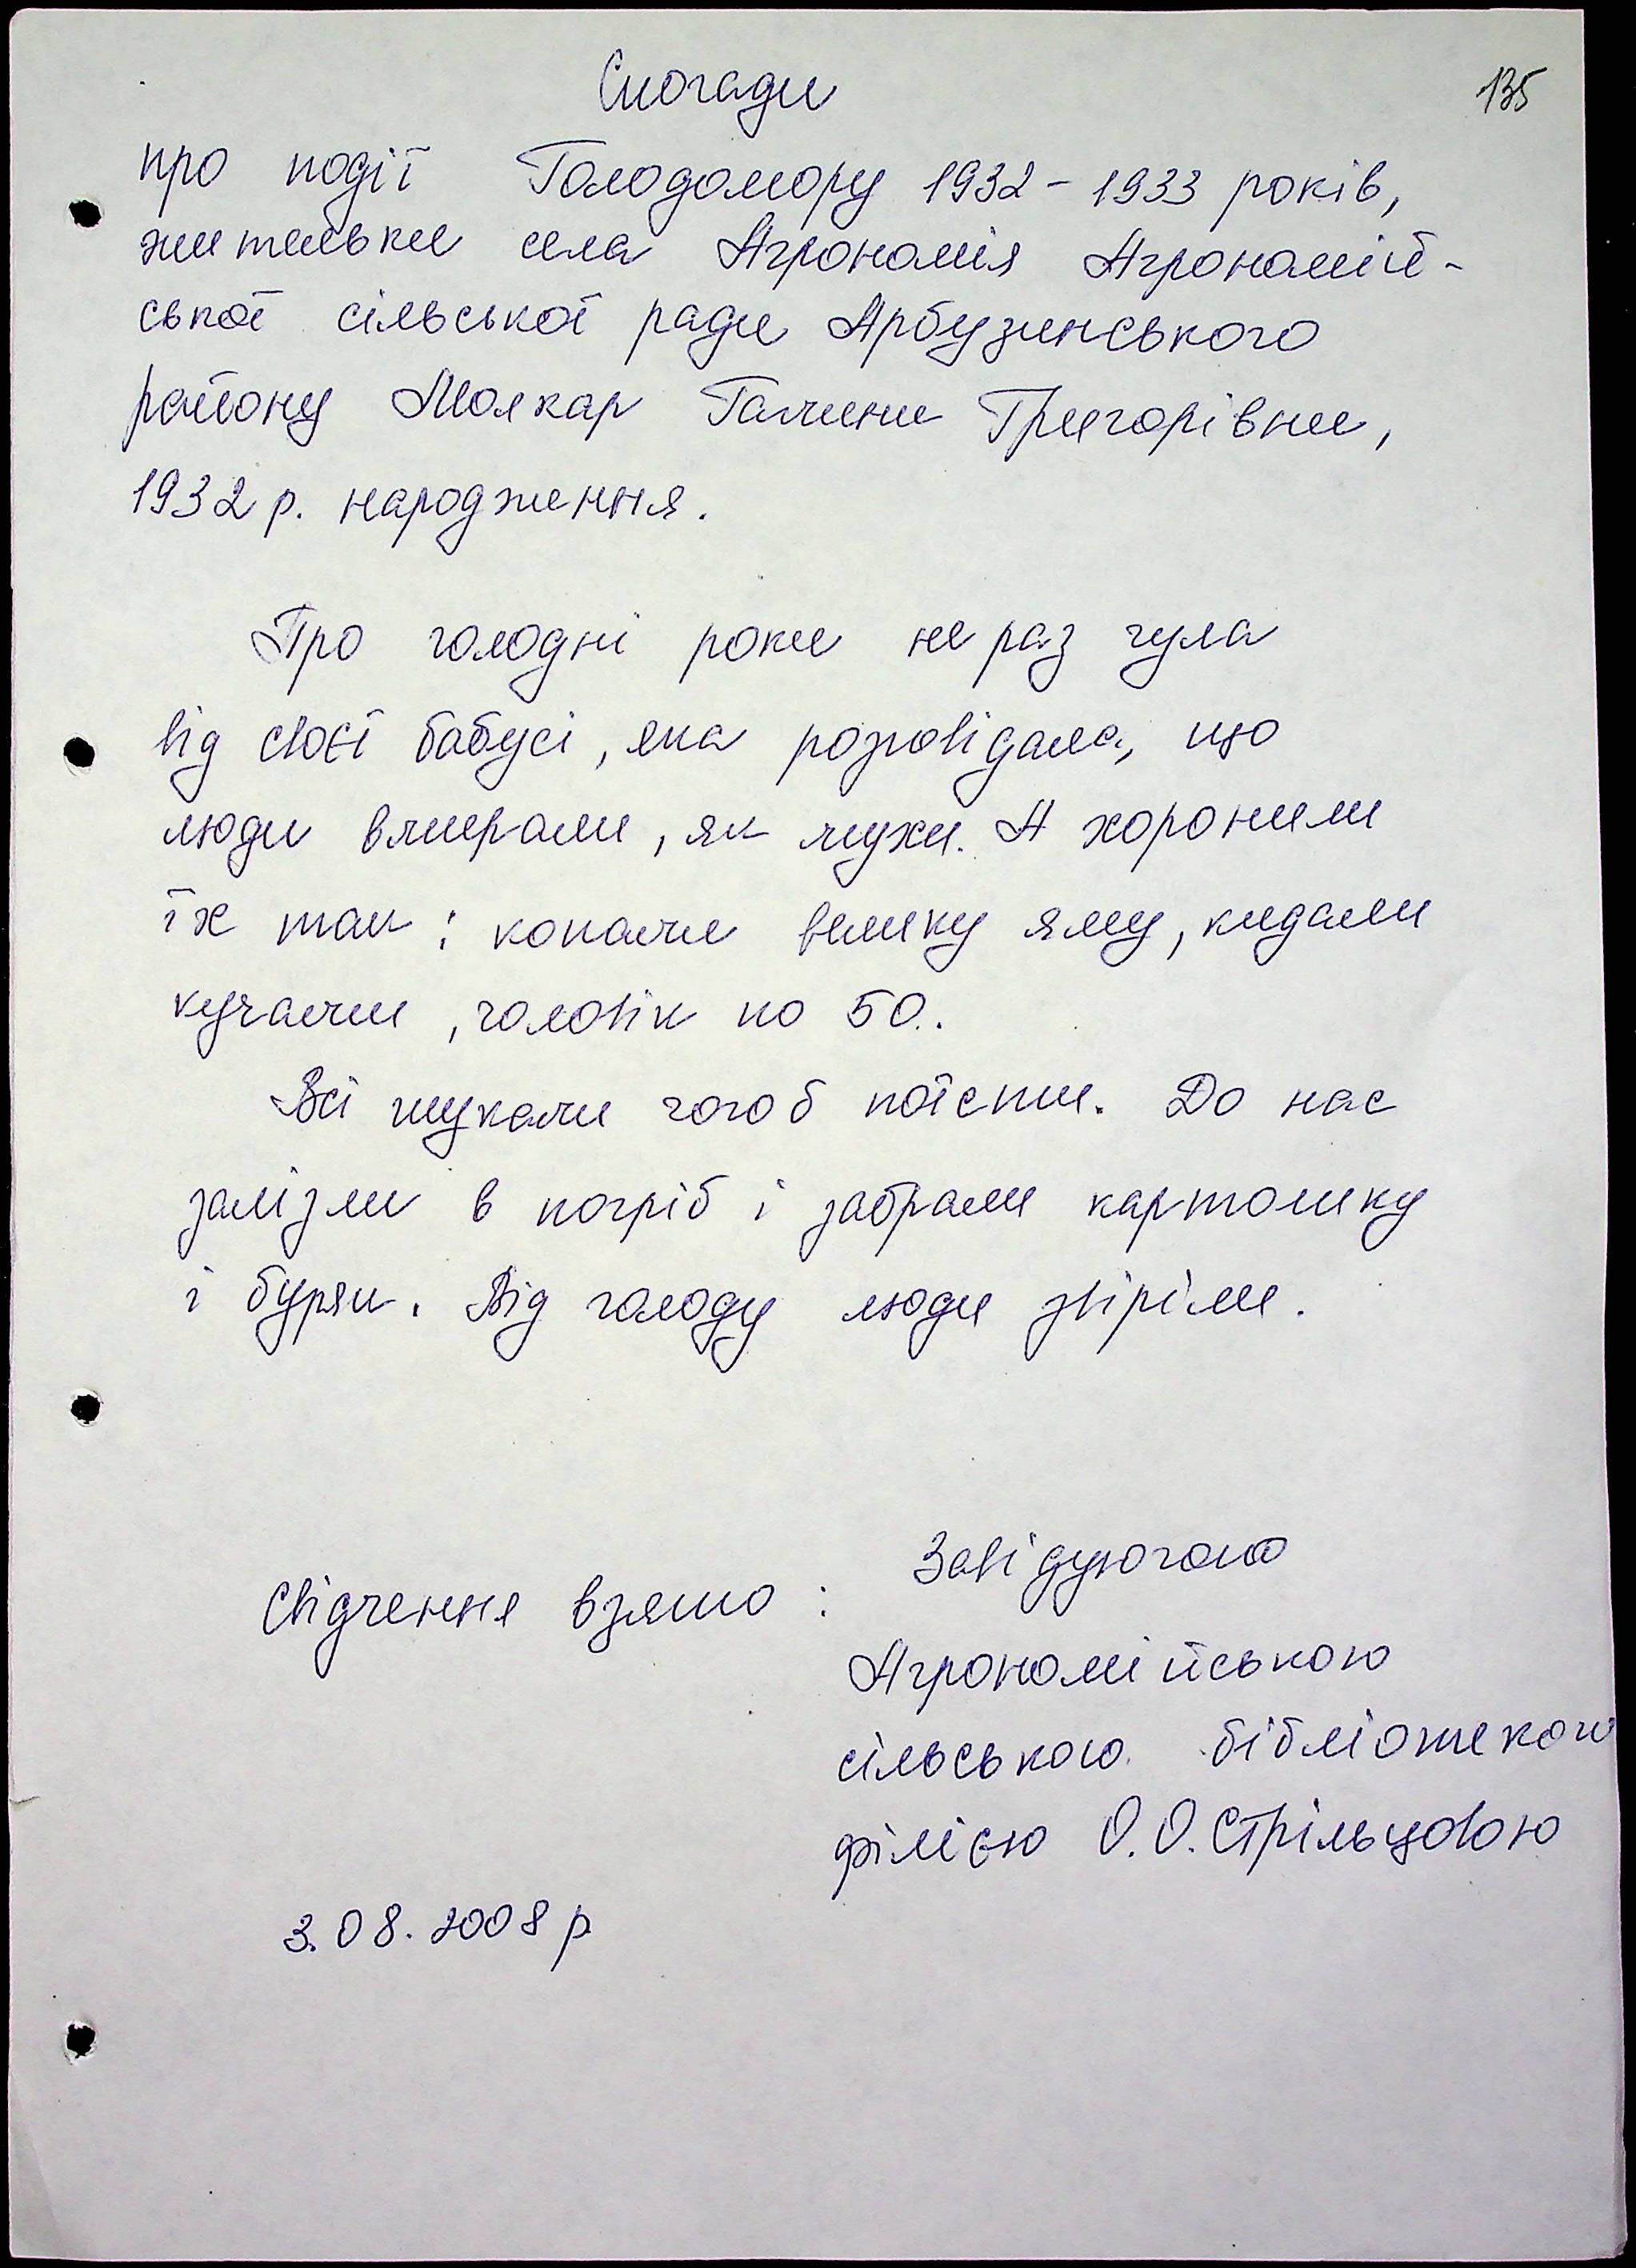 Спогади
135
про події Голодомору 1932-1933 років,
жительки села Агрономія Агрономій-
ської сільської ради Арбузинського
району Москар Галини Григорівни,
1932 р. народження.
Про голодні роки не раз чула
від своєї бабусі, яка розповідала, що
люди вмирали, як мухи. А хоронили
їх так: копали велику яму, кидали
кучами, чоловік по 50.
Всі шукали чого б поїсти. До нас
залізли в погріб і забрали картошку
і буряк. Від голоду люди звіріли.
Свідчення взято: Завідуючою
Агрономійською
сільською бібліотекою
філією О.О. Стрільцовою
3.08.2008 р